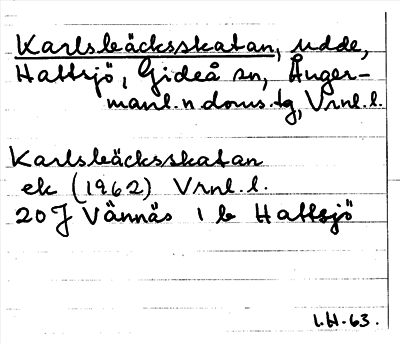 Karlsbäcksskatan, udde,
Hattsjö, Gideå sn, Ånger-
manl. n. doms. tg, Vrnl. l.
Karlsbäcksskatan
ek (1962) Vrnl. l.
20 J Vännäs 1 b Hattsjö
I.H. 63.